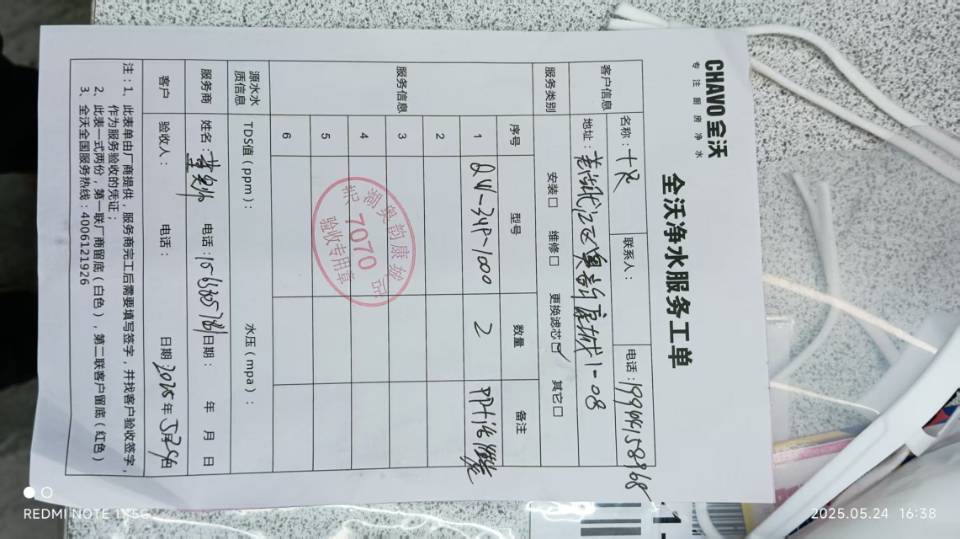 CHAVO全沃
专注厨房净水
全沃净水服务工单
客户信息
名称：
联系人：
电话：
地址：
1-08
服务类别
安装□ 维修□ 更换滤芯☑ 其它□
服务信息
序号 型号 数量 备注
1 QW-34P-1000 2 PP
2
3
4
5
6
7070
验收专用章
源水水质信息
TDS值（ppm）： 水压（mpa）：
服务商
姓名： 电话： 日期： 年 月 日
客户
验收人： 电话： 日期 2025年5月24日
注：1、此表单由厂商提供，服务商完工后需要填写签字，并找客户验收签字，
作为服务验收的凭证；
2、此表一式两份，第一联厂商留底（白色），第二联客户留底（红色）
3、全沃全国服务热线：4006121926
REDMI NOTE 11 5G
2025.05.24 16:38